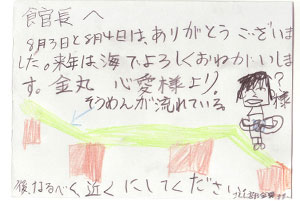 食官長へ
8月3日と8月4日は、ありがとうございま
した。来年は海でよろしくおねがいしま
す。金丸 心愛様より。
そうめんが流れている。
後、なるべく近くにしてください。